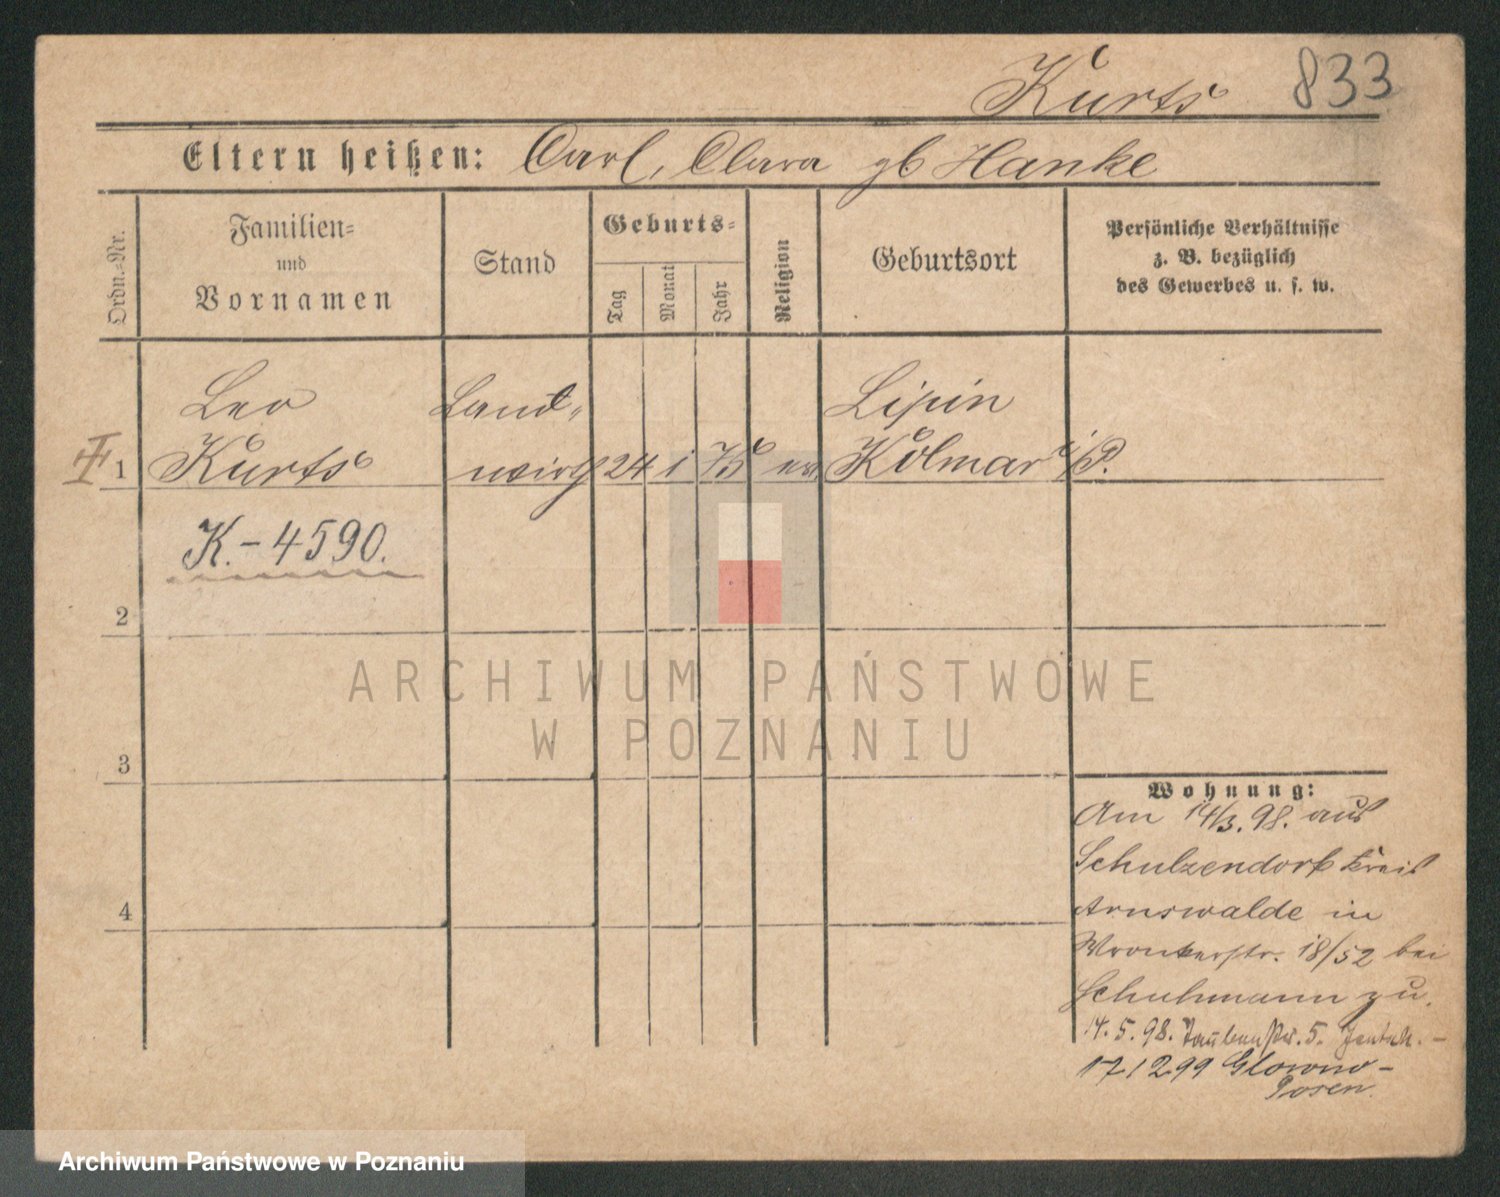 Kurts 833
Eltern heißen: Carl, Clara gb Hanke
Ordn.-Nr.
Familien-
und
Vornamen
Stand
Geburts-
Tag
Monat
Jahr
Religion
Geburtsort
Persönliche Verhältnisse
z. B. bezüglich
des Gewerbes u. s. w.
Leo Land- Lipin
I 1 Kurts wirth 24 1 75 ev. Kolmar i/P.
K.-4590.
2
3
4
ARCHIWUM PAŃSTWOWE
W POZNANIU
Wohnung:
Am 14/3. 98. aus
Schulzendorf Kreis
Arnswalde in
Wronkerstr. 18/52 bei
Schuhmann zu.
14. 5. 98. Taubenstr. 5.
17 12 99 Glowno-
Posen.
Archiwum Państwowe w Poznaniu